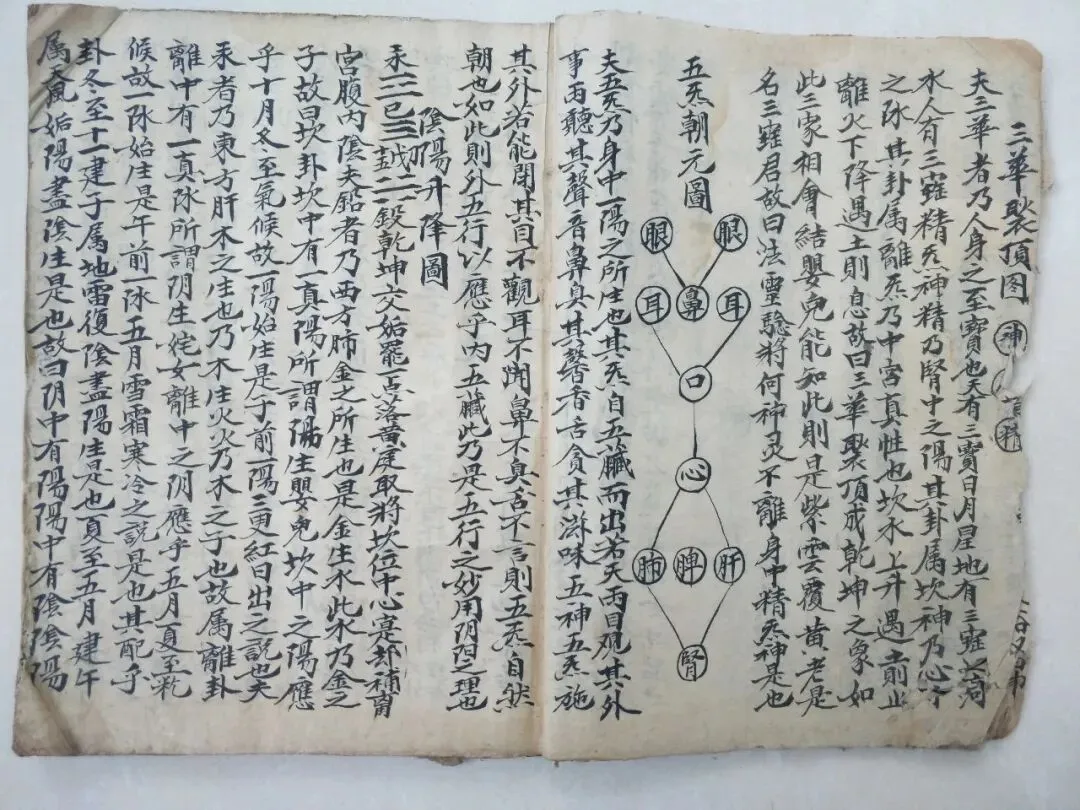 三華聚頂图
神
精
夫三華者乃人身之至寶也天有三寶日月星地有三寶
水人有三寶精炁神精乃腎中之陽其卦属坎神乃心
之脉其卦属離炁乃中宮真性也坎水上升遇土則止
離火下降遇土則息故曰三華聚頂成乾坤之象如
此三家相會結嬰児能知此則是紫雲覆黄老是
名三寶君故曰法靈驗將何神灵不離身中精炁神是也
五炁朝元圖
眼 眼
耳 鼻 耳
口
心
肺 脾 肝
腎
夫五炁乃身中一陽之所生也其炁自五臟而出若夫両目观其外
事両聽其聲音鼻臭其馨香舌貪其滋味五神五炁施
其外若能閉其目不觀耳不聞鼻不臭舌不言則五炁自然
朝也如此則外五行以應乎内五臟此乃是五行之妙用阴阳之理也
陰陽升降圖
汞三巳三 二鍛乾坤交姤罷一点落黄庭取將坎位中心寔却補离
宮腹内陰夫鉛者乃西方肺金之所生也是金生水此水乃金之
子故曰坎卦坎中有一真陽所謂陽生嬰児坎中之陽應
乎十月冬至氣候故一陽始生是子前一陽三更紅日出之説也夫
汞者乃東方肝木之生也乃木生火火乃木之子也故属離卦
離中有一真脉所謂阴生姹女離中之阴應乎五月夏至乾
候故一脉始生是午前一脉五月雪霜寒冷之説是也其配乎
卦冬至十一建子属地雷復陰盡陽生是也夏至五月建午
属天風姤陽盡陰生是也故曰阴中有陽陽中有陰陰陽